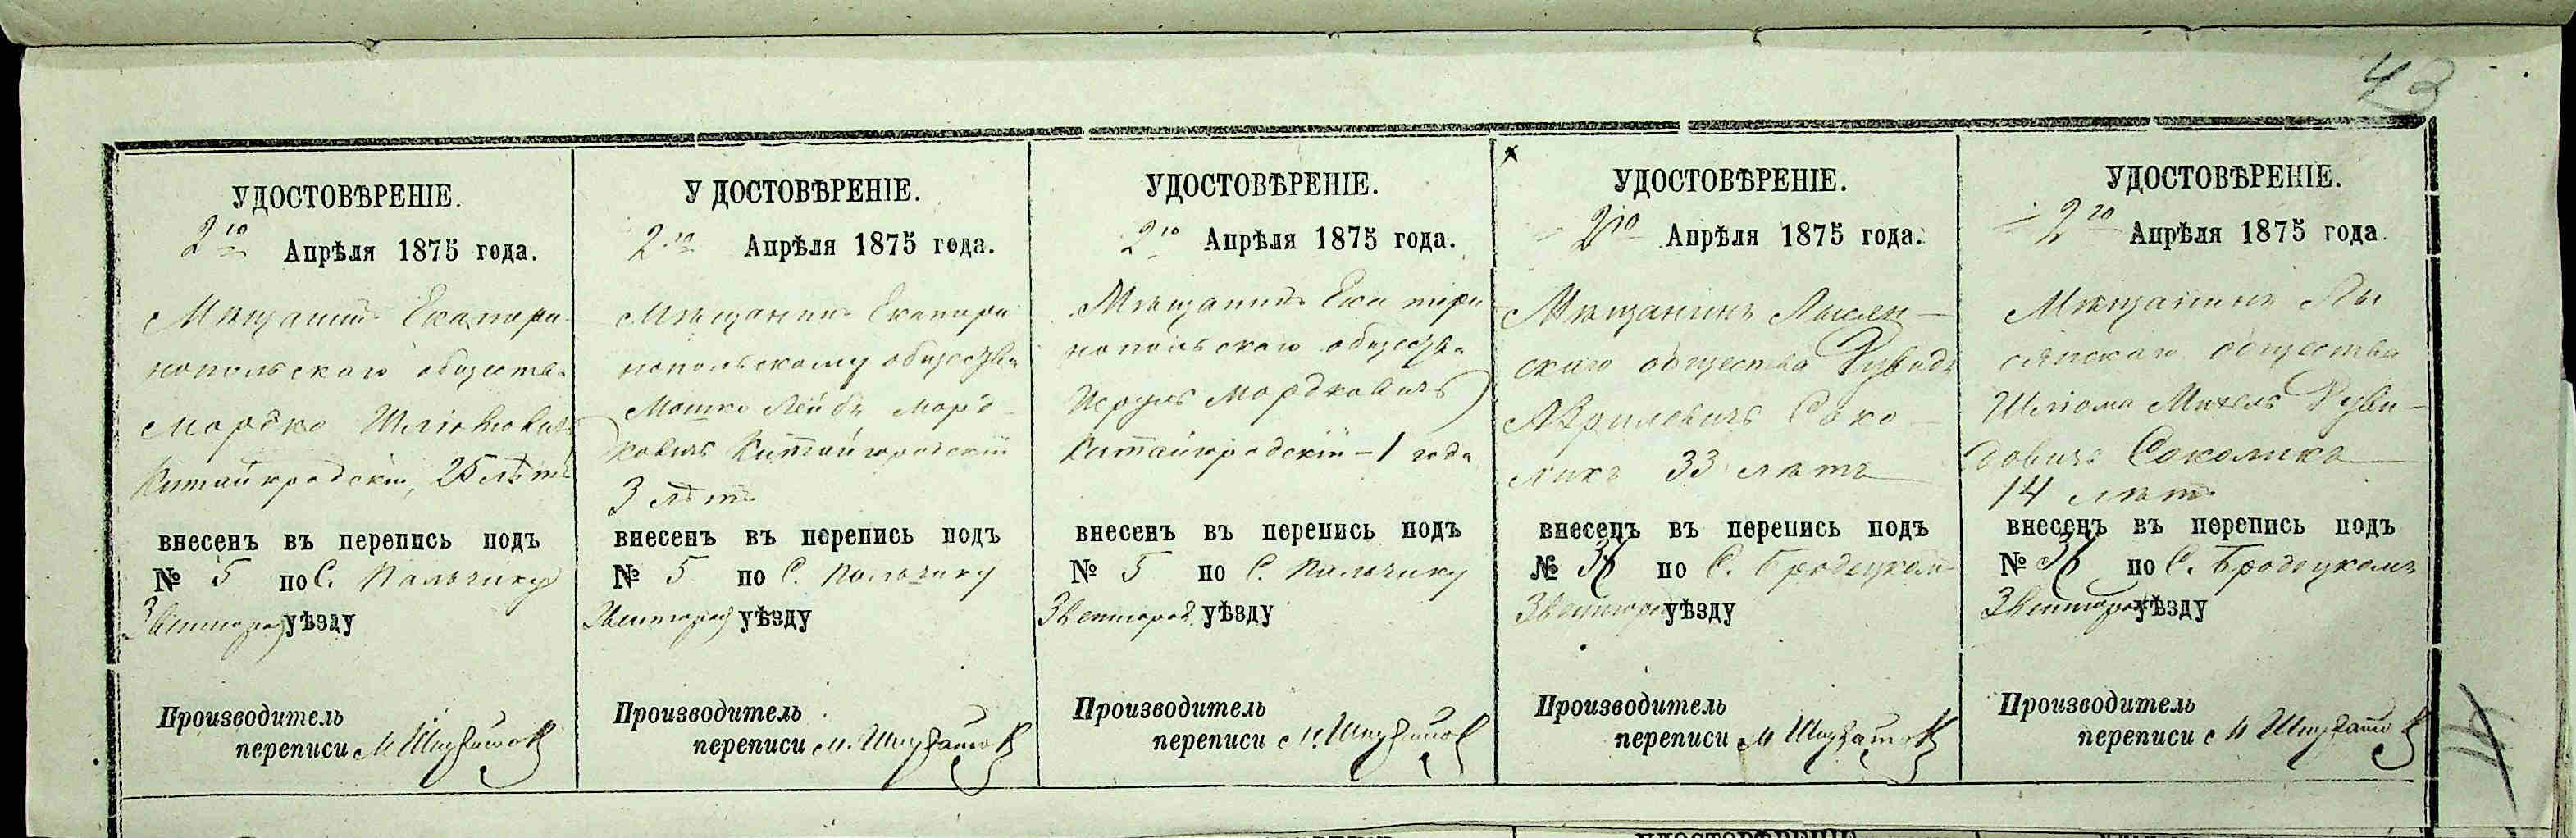 43
УДОСТОВѢРЕНІЕ.
2го Апрѣля 1875 года.
Мѣщанинъ Екатери-
нопольскаго общества
Мордко Шліомовичъ
Китайгородскій, 25 лѣтъ
внесенъ въ перепись подъ
№ 5 по С. Пальчику
Звенигород уѣзду
Производитель
переписи М
УДОСТОВѢРЕНІЕ.
2го Апрѣля 1875 года.
Мѣщанинъ Екатери
нопольскому общества
Мошко Лейбъ Морд-
ковичъ Китайгородскій
3 лѣтъ
внесенъ въ перепись подъ
№ 5 по С. Пальчику
Звенигород уѣзду
Производитель
переписи М.
УДОСТОВѢРЕНІЕ.
2го Апрѣля 1875 года.
Мѣщанинъ Екатери
нопольскаго общества
Исруль Мордковичъ
Китайгородскій - 1 года
внесенъ въ перепись подъ
№ 5 по С. Пальчику
Звенигород. уѣзду
Производитель
переписи М.
УДОСТОВѢРЕНІЕ.
2го Апрѣля 1875 года.
Мѣщанинъ Лысян-
скаго общества Рувидъ
Соко-
ликъ 33 лѣтъ
внесенъ въ перепись подъ
№ 36 по С. Бродецкому
Звенигород уѣзду
Производитель
переписи М
УДОСТОВѢРЕНІЕ.
2го Апрѣля 1875 года.
Мѣщанинъ Лы
сянскаго общества
Шліома Михель Руви-
довичъ Соколикъ
14 лѣтъ
внесенъ въ перепись подъ
№ 36 по С. Бродецкому
Звенигород уѣзду
Производитель
переписи М